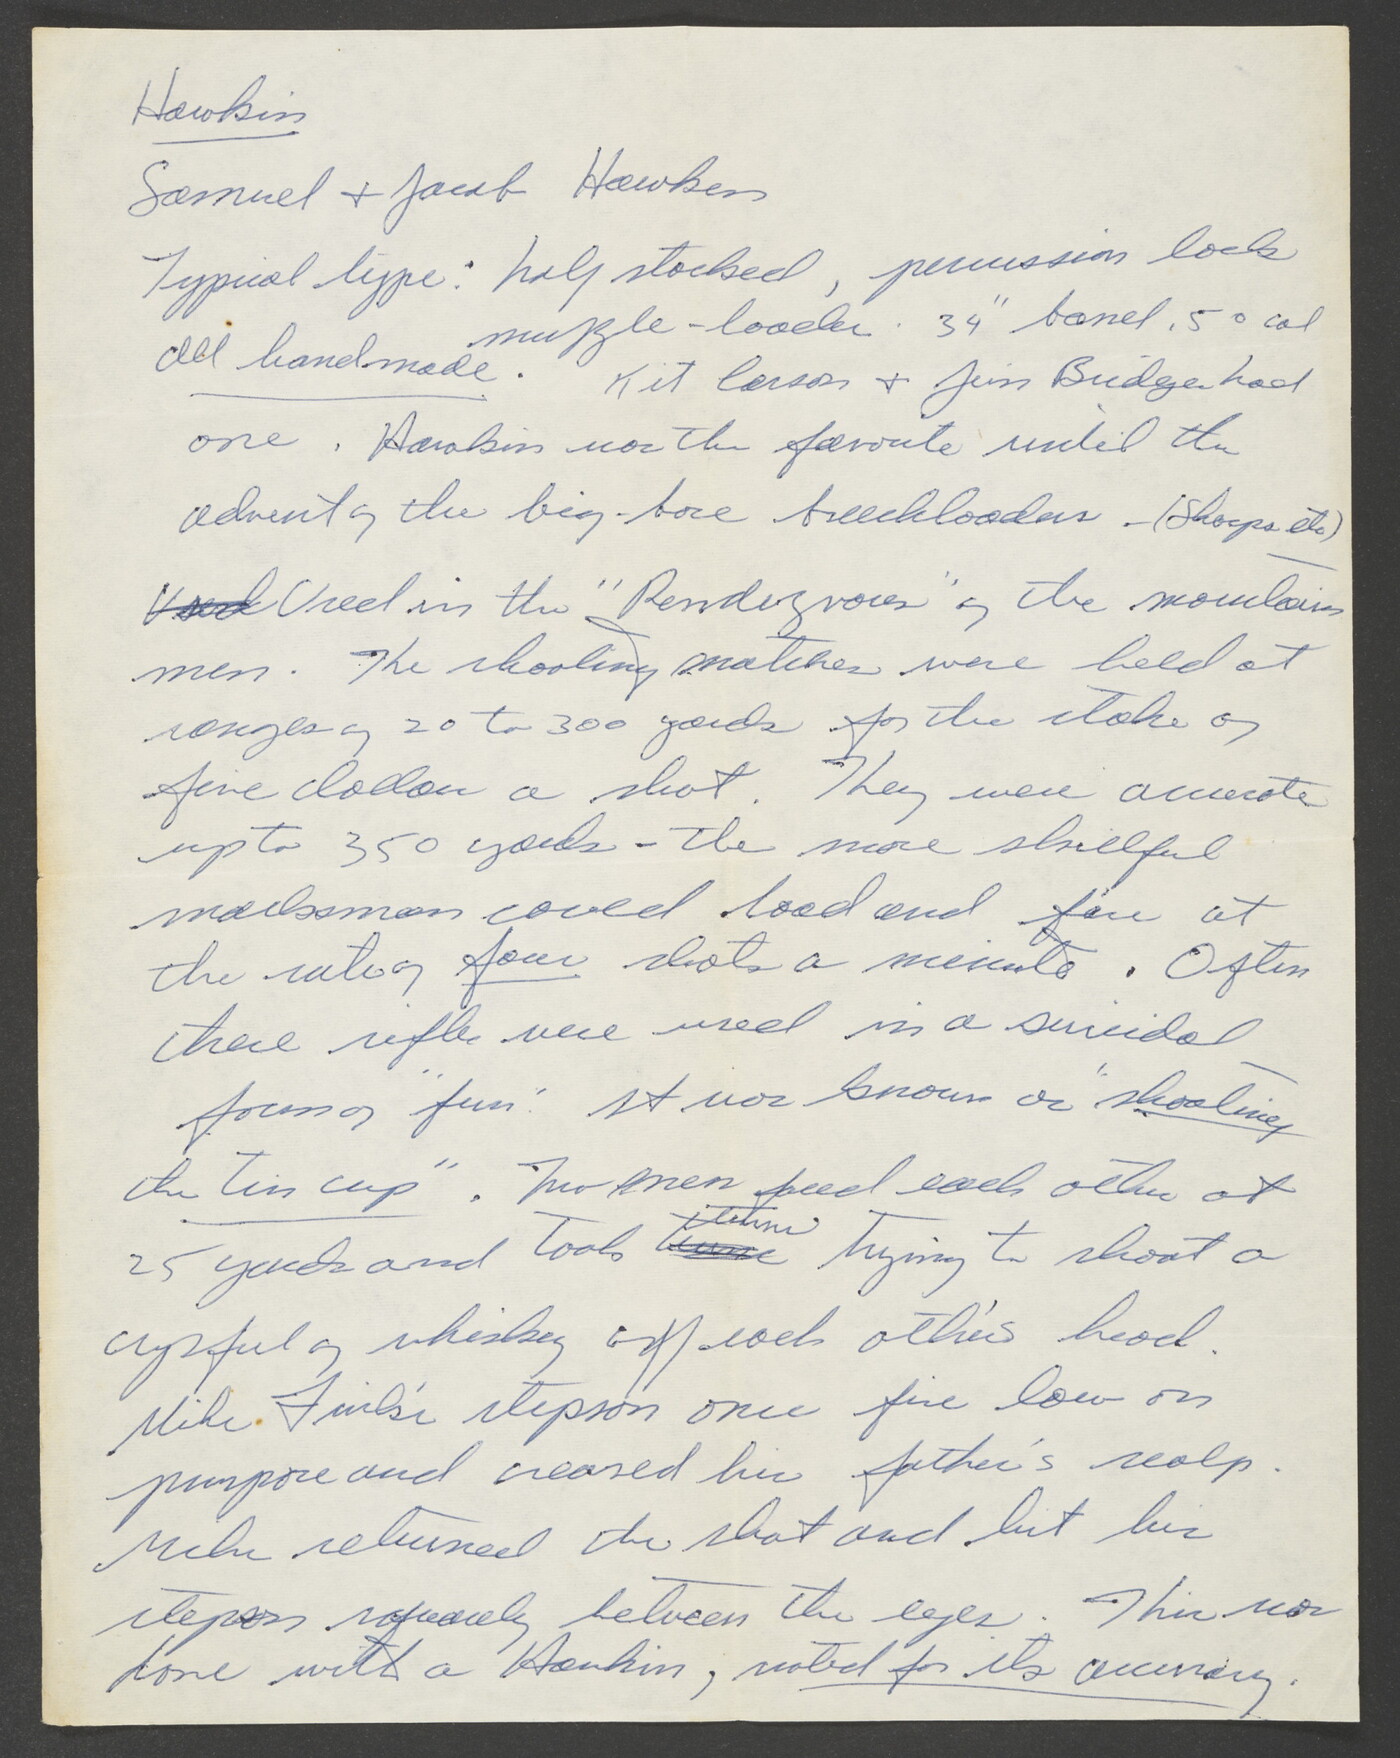 Hawkin
Samuel + Jacob Hawken
Typical type: half stocked, percussion lock
muzzle-loader. 34" barrel, 50 cal
All handmade. Kit Carson + Jim Bridger had
one. Hawkin was the favorite until the
advent of the big-bore breechloaders - (Sharps etc)
Used Used in the "Rendezvous" of the mountain
men. The shooting matches were held at
ranges of 20 to 300 yards for the stake of
five dollars a shot. They were accurate
up to 350 yards - the more skillful
marksman could load and fire at
the rate of four shots a minute. Often
these rifles were used in a suicidal
form of "fun". It was known as "shooting
the tin cup". Two men faced each other at
25 yards and took turns trying to shoot a
cupful of whiskey off each other's head.
Mike Fink's stepson once fire low on
purpose and creased his father's scalp.
Mike returned the shot and hit his
stepson squarely between the eyes. This was
done with a Hawkin, noted for its accuracy.